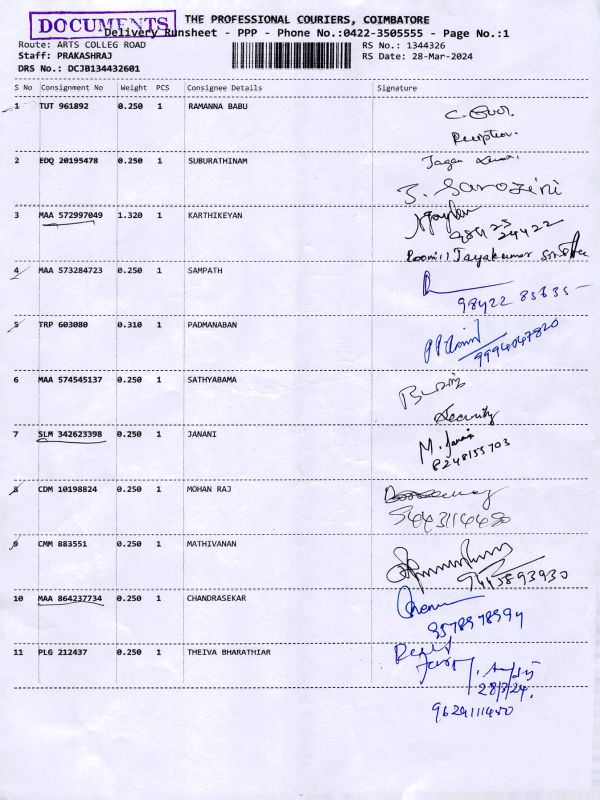 DOCUMENTS
THE PROFESSIONAL COURIERS, COIMBATORE
Delivery Runsheet - PPP - Phone No.:0422-3505555 - Page No.:1
Route: ARTS COLLEG ROAD
RS No.: 1344326
Staff: PRAKASHRAJ
RS Date: 28-Mar-2024
DRS No.: DCJB134432601
S No Consignment No Weight PCS Consignee Details Signature
1 TUT 961892 0.250 1 RAMANNA BABU
Reception.
2 EDQ 20195478 0.250 1 SUBURATHINAM
Jagan
J. Sarozini
3 MAA 572997049 1.320 1 KARTHIKEYAN
98425
24422
Room:11 Jayakumar
4 MAA 573284723 0.250 1 SAMPATH
98422 85635
5 TRP 603080 0.310 1 PADMANABAN
9994047820
6 MAA 574545137 0.250 1 SATHYABAMA
Security
7 SLM 342623398 0.250 1 JANANI
M. Janani
8248155703
8 CDM 10198824 0.250 1 MOHAN RAJ
9443114480
9 CMM 883551 0.250 1 MATHIVANAN
9445893930
10 MAA 864237734 0.250 1 CHANDRASEKAR
9578978994
11 PLG 212437 0.250 1 THEIVA BHARATHIAR
28/3/24.
9629111450